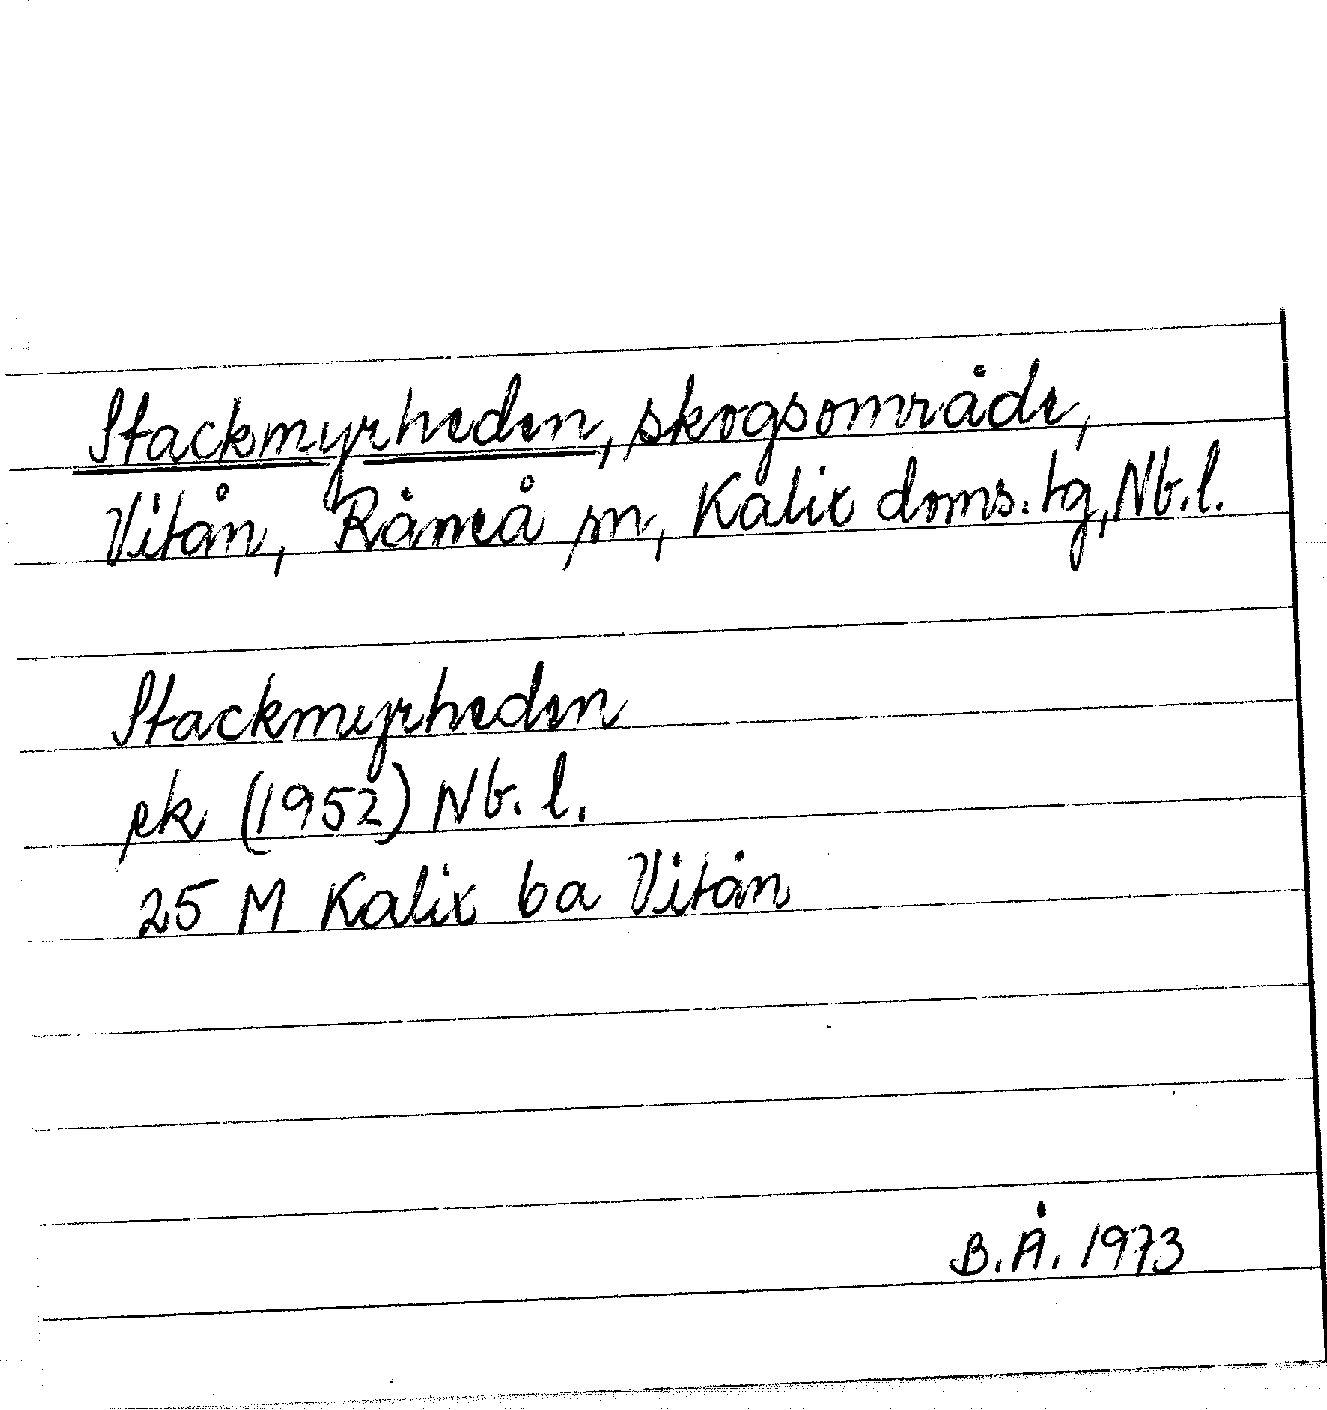 Stackmyrheden, skogsområde,
Vitån, Råneå sn, Kalix doms. tg, Nb. l.
Stackmyrheden
ek (1952) Nb. l.
25 M Kalix 6a Vitån
B.Å. 1973